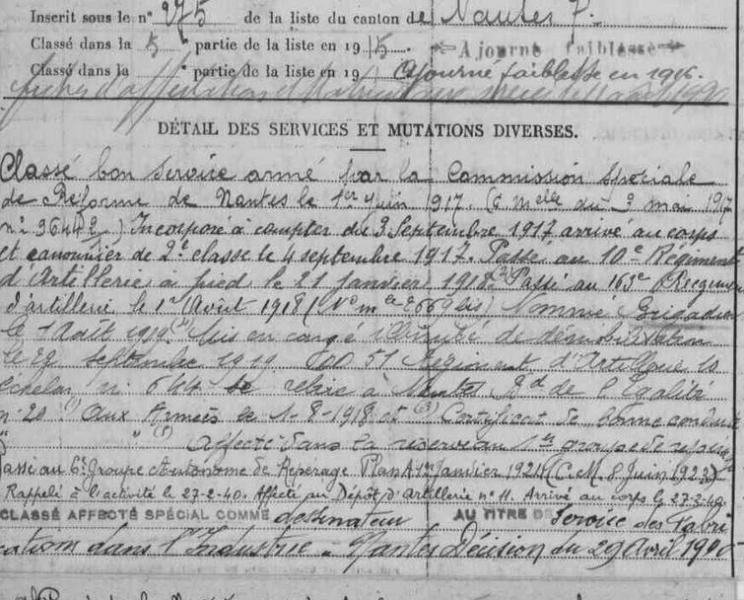 Inscrit sous le n° 275 de la liste du canton de Nantes 7e
Classé dans la 5e partie de la liste en 1915. Ajourné faiblesse
Classé dans la partie de la liste en 19 Ajourné faiblesse en 1916.
DÉTAIL DES SERVICES ET MUTATIONS DIVERSES.
Classé bon service armé par la Commission spéciale
de Réforme de Nantes le 1er Juin 1917. (C. Melle du 3 mai 1917
n° 36442) Incorporé à compter du 3 Septembre 1917 arrivé au corps
et canonnier de 2e classe le 4 septembre 1917. Passé au 10e Régiment
d'Artillerie à pied le 21 Janvier 1918. Passé au 163e Régiment
d'artillerie le 1er Août 1918 Nommé Brigadier
le 1 Août 1919. Mis en congé illimité de démobilisation
le 22 septembre 1919 51 Régiment d'Artillerie
échelon n° 644 se retire à Nantes Bd de l'Egalité
n° 20 Aux Armées le 1-8-1918 Certificat de bonne conduite
Affecté dans la réserve au 1er groupe de
Passé au 6e Groupe Autonome de Repérage Plan A 1er Janvier 1924 (C.M. 8 Juin 1923)
Rappelé à l'activité le 27-2-40. Affecté au Dépôt d'Artillerie n° 11. Arrivé au corps le 27-2-40.
CLASSÉ AFFECTÉ SPÉCIAL COMME dessinateur AU TITRE DE Service des Fabri
cations dans l'Industrie. Nantes Décision du 29 Avril 1940